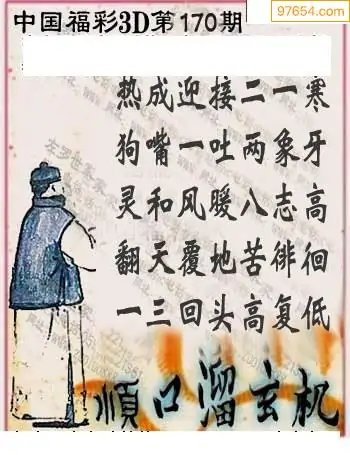 97654.com
中国福彩3D第170期
热成迎接二一寒
狗嘴一吐两象牙
灵和风暖八志高
翻天覆地苦徘徊
一三回头高复低
顺口溜玄机